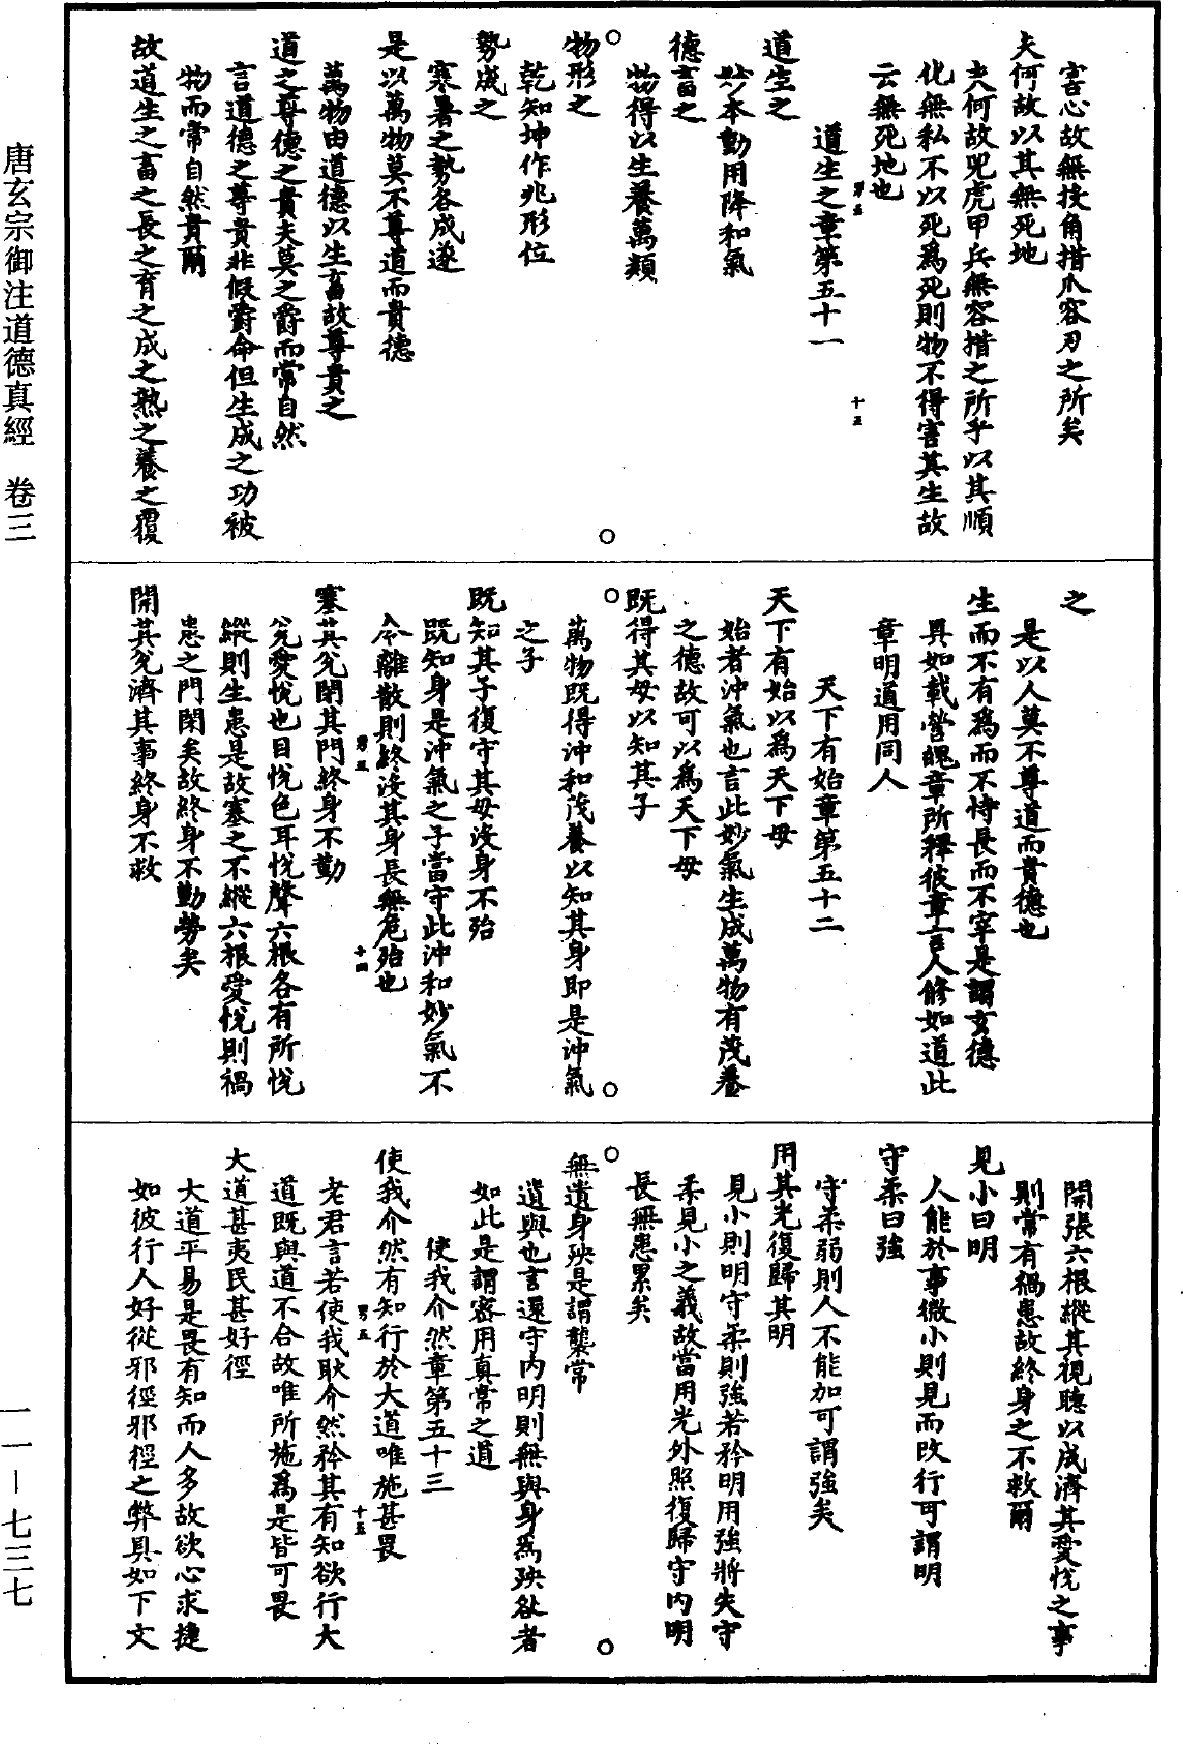 害心故無投角措爪容刃之所矣
夫何故以其無死地
夫何故兕虎甲兵無容措之所乎以其順
化無私不以死爲死則物不得害其生故
云無死地也
道生之章第五十一
道生之
妙本動用降和氣
德畜之
物得以生養萬類
物形之
乾知坤作兆形位
勢成之
寒暑之勢各成遂
是以萬物莫不尊道而貴德
萬物由道德以生畜故尊貴之
道之尊德之貴夫莫之爵而常自然
言道德之尊貴非假爵命但生成之功被
物而常自然貴爾
故道生之畜之長之育之成之熟之養之覆
之
是以人莫不尊道而貴德也
生而不有爲而不恃長而不宰是謂玄德
具如載營魄章所釋彼章言人修如道此
章明道用同人
天下有始章第五十二
天下有始以爲天下母
始者沖氣也言此妙氣生成萬物有茂養
之德故可以爲天下母
既得其母以知其子
萬物既得沖和茂養以知其身即是沖氣
之子
既知其子復守其母沒身不殆
既知身是沖氣之子當守此沖和妙氣不
令離散則終沒其身長無危殆也
塞其兌閉其門終身不勤
兌愛悅也目悅色耳悅聲六根各有所悅
縱則生患是故塞之不縱六根愛悅則禍
患之門閉矣故終身不勤勞矣
開其兌濟其事終身不救
開張六根縱其視聽以成濟其愛悅之事
則常有禍患故終身之不救爾
見小曰明
人能於事微小則見而改行可謂明
守柔曰強
守柔弱則人不能加可謂強矣
用其光復歸其明
見小則明守柔則強若矜明用強將失守
柔見小之義故當用光外照復歸守内明
長無患累矣
無遺身殃是謂襲常
遺與也言還守内明則無與身爲殃咎者
如此是謂密用真常之道
使我介然章第五十三
使我介然有知行於大道唯施甚畏
老君言若使我耿介然矜其有知欲行大
道既與道不合故唯所施爲是皆可畏
大道甚夷民甚好徑
大道平易是畏有知而人多故欲心求捷
如彼行人好從邪徑邪徑之弊具如下文
唐玄宗御注道德真經　卷三
一一－七三七